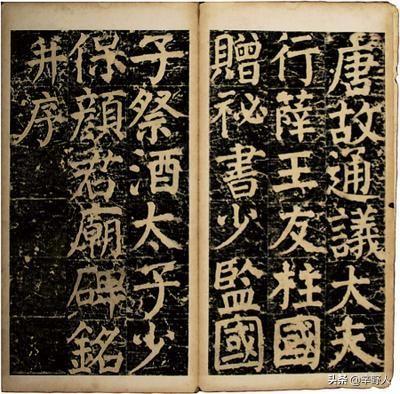 唐故通議大夫
行薛王友柱國
贈祕書少監國
子祭酒太子少
保顏君廟碑銘
并序
头条@辛野人